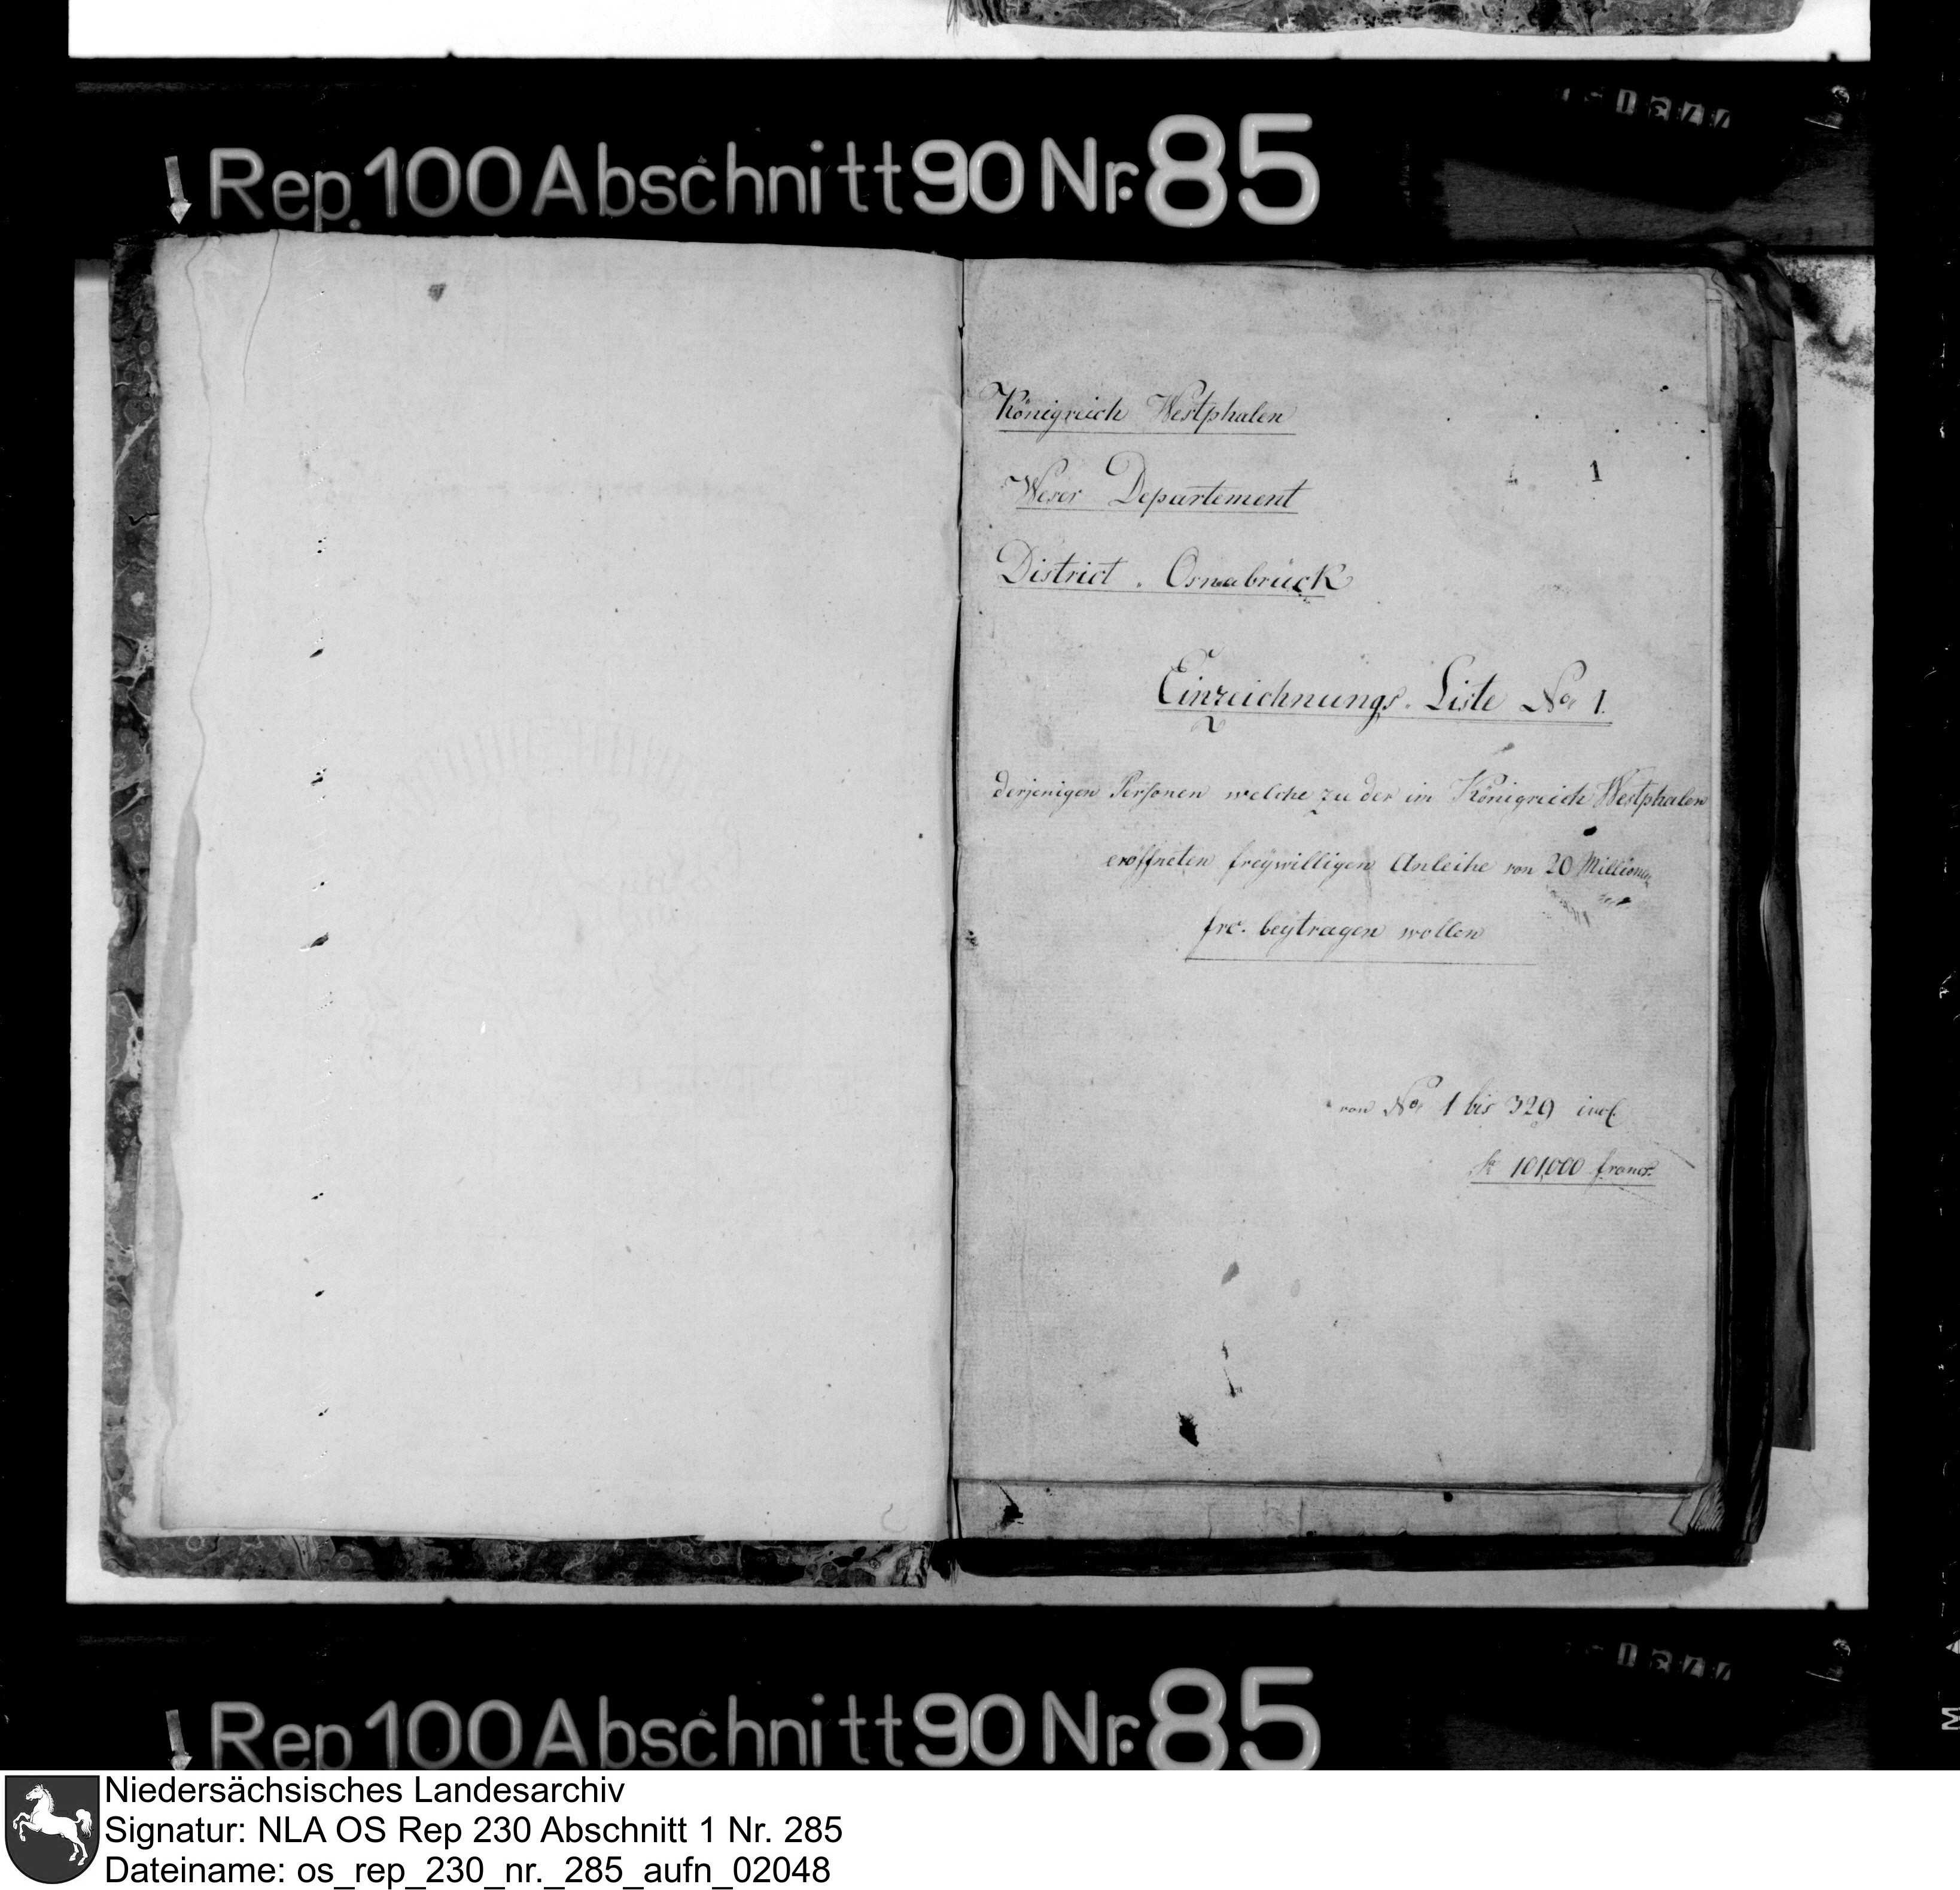 Rep. 100 Abschnitt 90 Nr. 85
Königreich Westphalen
1
Weser Departement
District. Osnabrück
Einzeichnungs. Liste No. 1.
derjenigen Personen welche zu der im Königreich Westphalen
eröffneten freywilligen Anleihe von 20 Millionen
frc. beytragen wollen
von No. 1 bis 329 incl.
101,000 francs.
Rep 100 Abschnitt 90 Nr. 85
Niedersächsisches Landesarchiv
Signatur: NLA OS Rep 230 Abschnitt 1 Nr. 285
Dateiname: os_rep_230_nr._285_aufn_02048